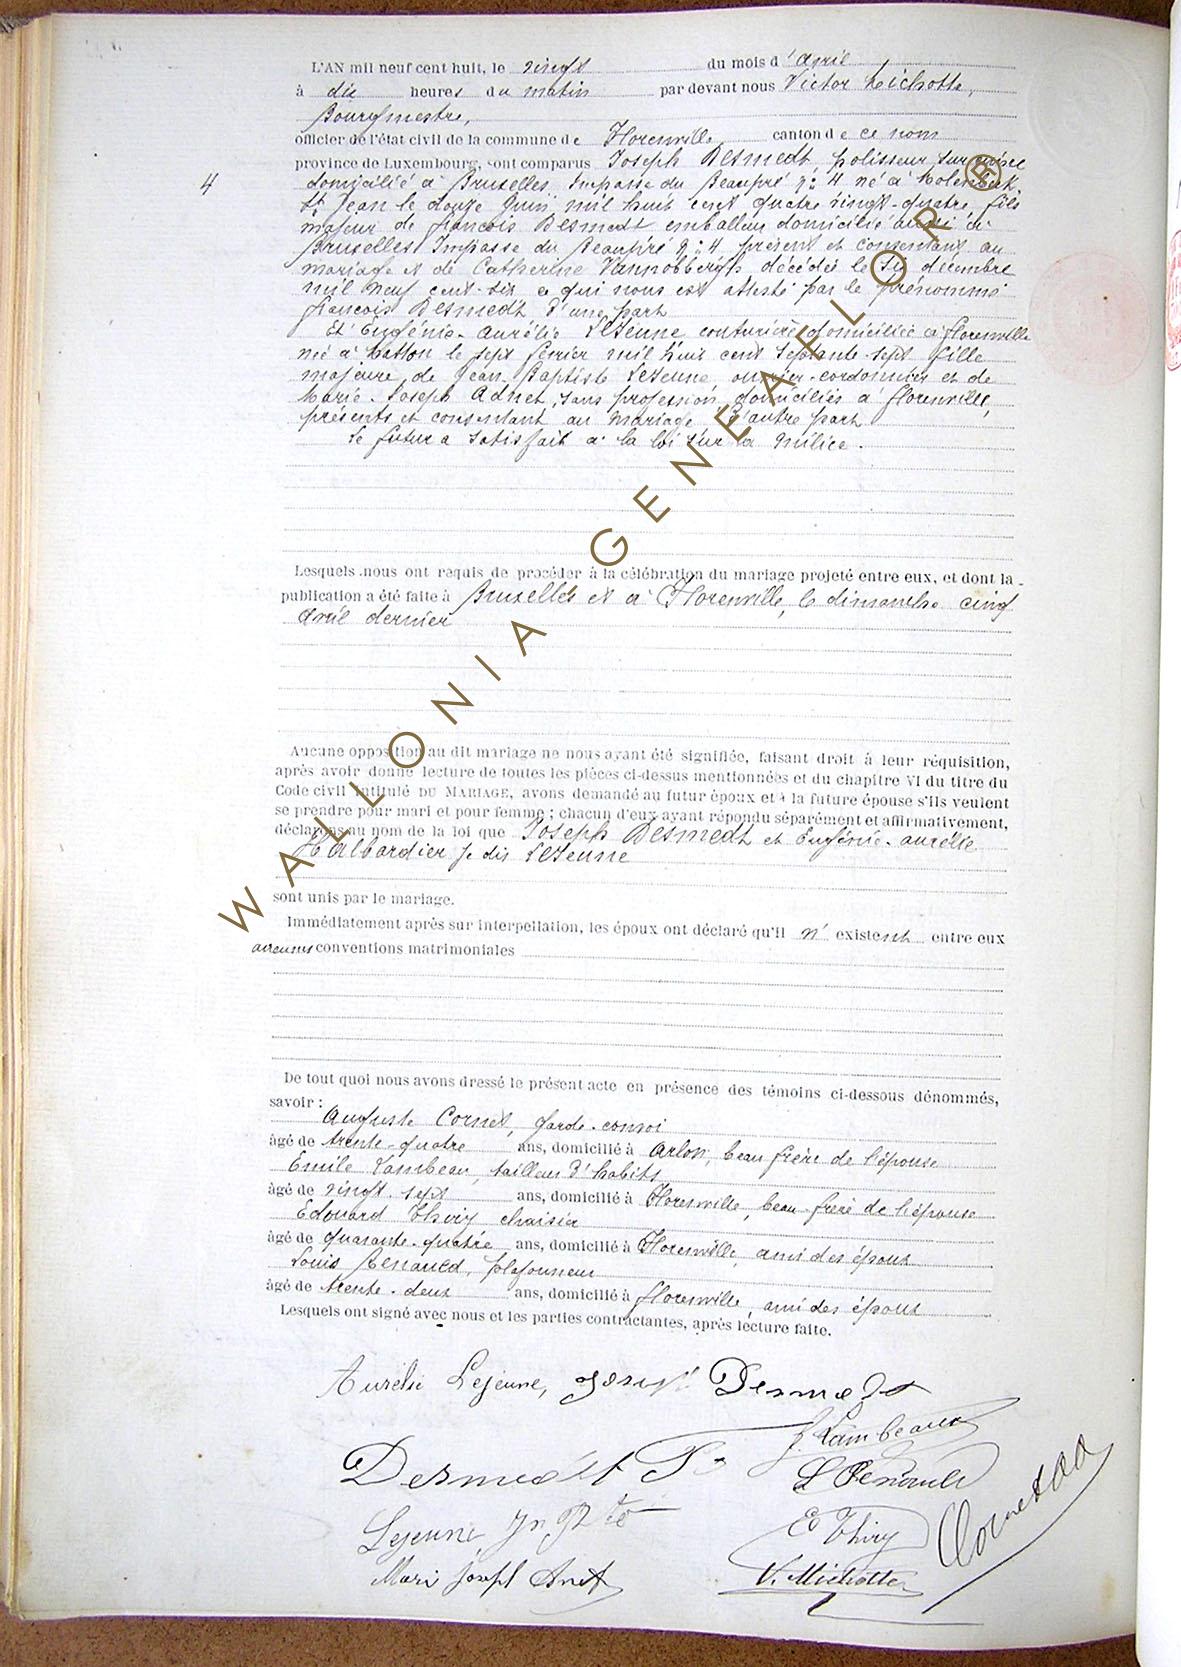 L'AN mil neuf cent huit, le vingt du mois d'avril
à dix heures du matin par devant nous Victor Michotte,
Bourgmestre,
officier de l'état civil de la commune de Florenville canton de ce nom
4
province de Luxembourg, sont comparus Joseph Desmedt polisseur sur
domicilié à Bruxelles, Impasse du Beaupré n: 4 né à Molenbeek
St Jean le douze Juin mil huit cent quatre vingt-quatre, fils
majeur de françois Desmedt emballeur domicilié aussi à
Bruxelles Impasse du Beaupré n: 4 présent et consentant au
mariage et de Catherine décédée le six décembre
mil neuf cent-six ce qui nous est attesté par le prénommé
françois Desmedt d'une part
Et Eugénie-Aurélie Lejeune couturière domiciliée à florenville
née à Matton le sept février mil huit cent septante-sept fille
majeure de Jean-Baptiste Lejeune, ouvrier-cordonnier et de
Marie-Joseph Adnet, sans profession, domiciliés à florenville,
présents et consentant au mariage d'autre part
Le futur a satisfait à la loi sur la milice.
Lesquels nous ont requis de procéder à la célébration du mariage projeté entre eux, et dont la
publication a été faite à Bruxelles et à Florenville, le dimanche cinq
avril dernier
Aucune opposition au dit mariage ne nous ayant été signifiée, faisant droit à leur réquisition,
après avoir donné lecture de toutes les pièces ci-dessus mentionnées et du chapitre VI du titre du
Code civil intitulé DU MARIAGE, avons demandé au futur époux et à la future épouse s'ils veulent
se prendre pour mari et pour femme ; chacun d'eux ayant répondu séparément et affirmativement,
déclarons au nom de la loi que Joseph Desmedt et Eugénie-aurélie
Halbardier je dis Lejeune
sont unis par le mariage.
Immédiatement après sur interpellation, les époux ont déclaré qu'il n'existent entre eux
aucunes conventions matrimoniales
De tout quoi nous avons dressé le présent acte en présence des témoins ci-dessous dénommés,
savoir :
Auguste Cornet, garde-convoi
âgé de trente-quatre ans, domicilié à Arlon, beau frère de l'épouse
Emile Lambeau, tailleur d'habits
âgé de vingt-sept ans, domicilié à Florenville, beau-frère de l'épouse
Edouard Thiry chaisier
âgé de quarante-quatre ans, domicilié à Florenville, ami des époux
Louis Renauld, plafonneur
âgé de trente-deux ans, domicilié à florenville, ami des époux
Lesquels ont signé avec nous et les parties contractantes, après lecture faite.
Aurélie Lejeune, Joseph Desmedt
Lambeaux
Desmedt F
L Renauld
Lejeune, Jn Bte
E Thiry
Cornet
Mari Joseph Anet
V. Michotte
WALLONIA GENEAFLOR ®